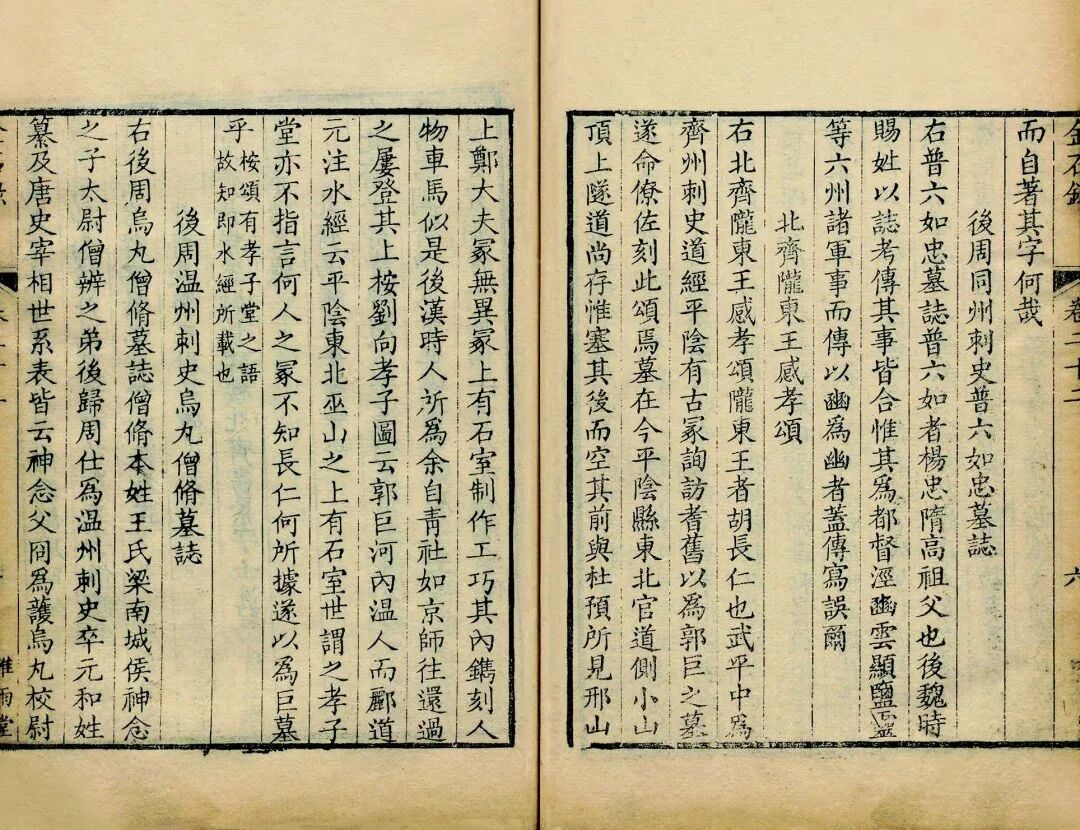 金石錄 卷二十二 六
而自著其字何哉
後周同州刺史普六如忠墓誌
右普六如忠墓誌普六如者楊忠隋高祖父也後魏時
賜姓以誌考傳其事皆合惟其爲都督涇豳雲顯鹽靈
等六州諸軍事而傳以豳爲幽者蓋傳寫誤爾
北齊隴東王感孝頌
右北齊隴東王感孝頌隴東王者胡長仁也武平中爲
齊州刺史道經平陰有古冢詢訪耆舊以爲郭巨之墓
遂命僚佐刻此頌焉墓在今平陰縣東北官道側小山
頂上隧道尚存惟塞其後而空其前與杜預所見邢山
上鄭大夫冢無異冢上有石室制作工巧其內鐫刻人
物車馬似是後漢時人所爲余自青社如京師往還過
之屢登其上桉劉向孝子圖云郭巨河內溫人而酈道
元注水經云平陰東北巫山之上有石室世謂之孝子
堂亦不指言何人之冢不知長仁何所據遂以爲巨墓
乎桉頌有孝子堂之語故知即水經所載也
後周温州刺史烏丸僧脩墓誌
右後周烏丸僧脩墓誌僧脩本姓王氏梁南城侯神念
之子太尉僧辨之弟後歸周仕爲温州刺史卒元和姓
纂及唐史宰相世系表皆云神念父冏爲護烏丸校尉
雅雨堂